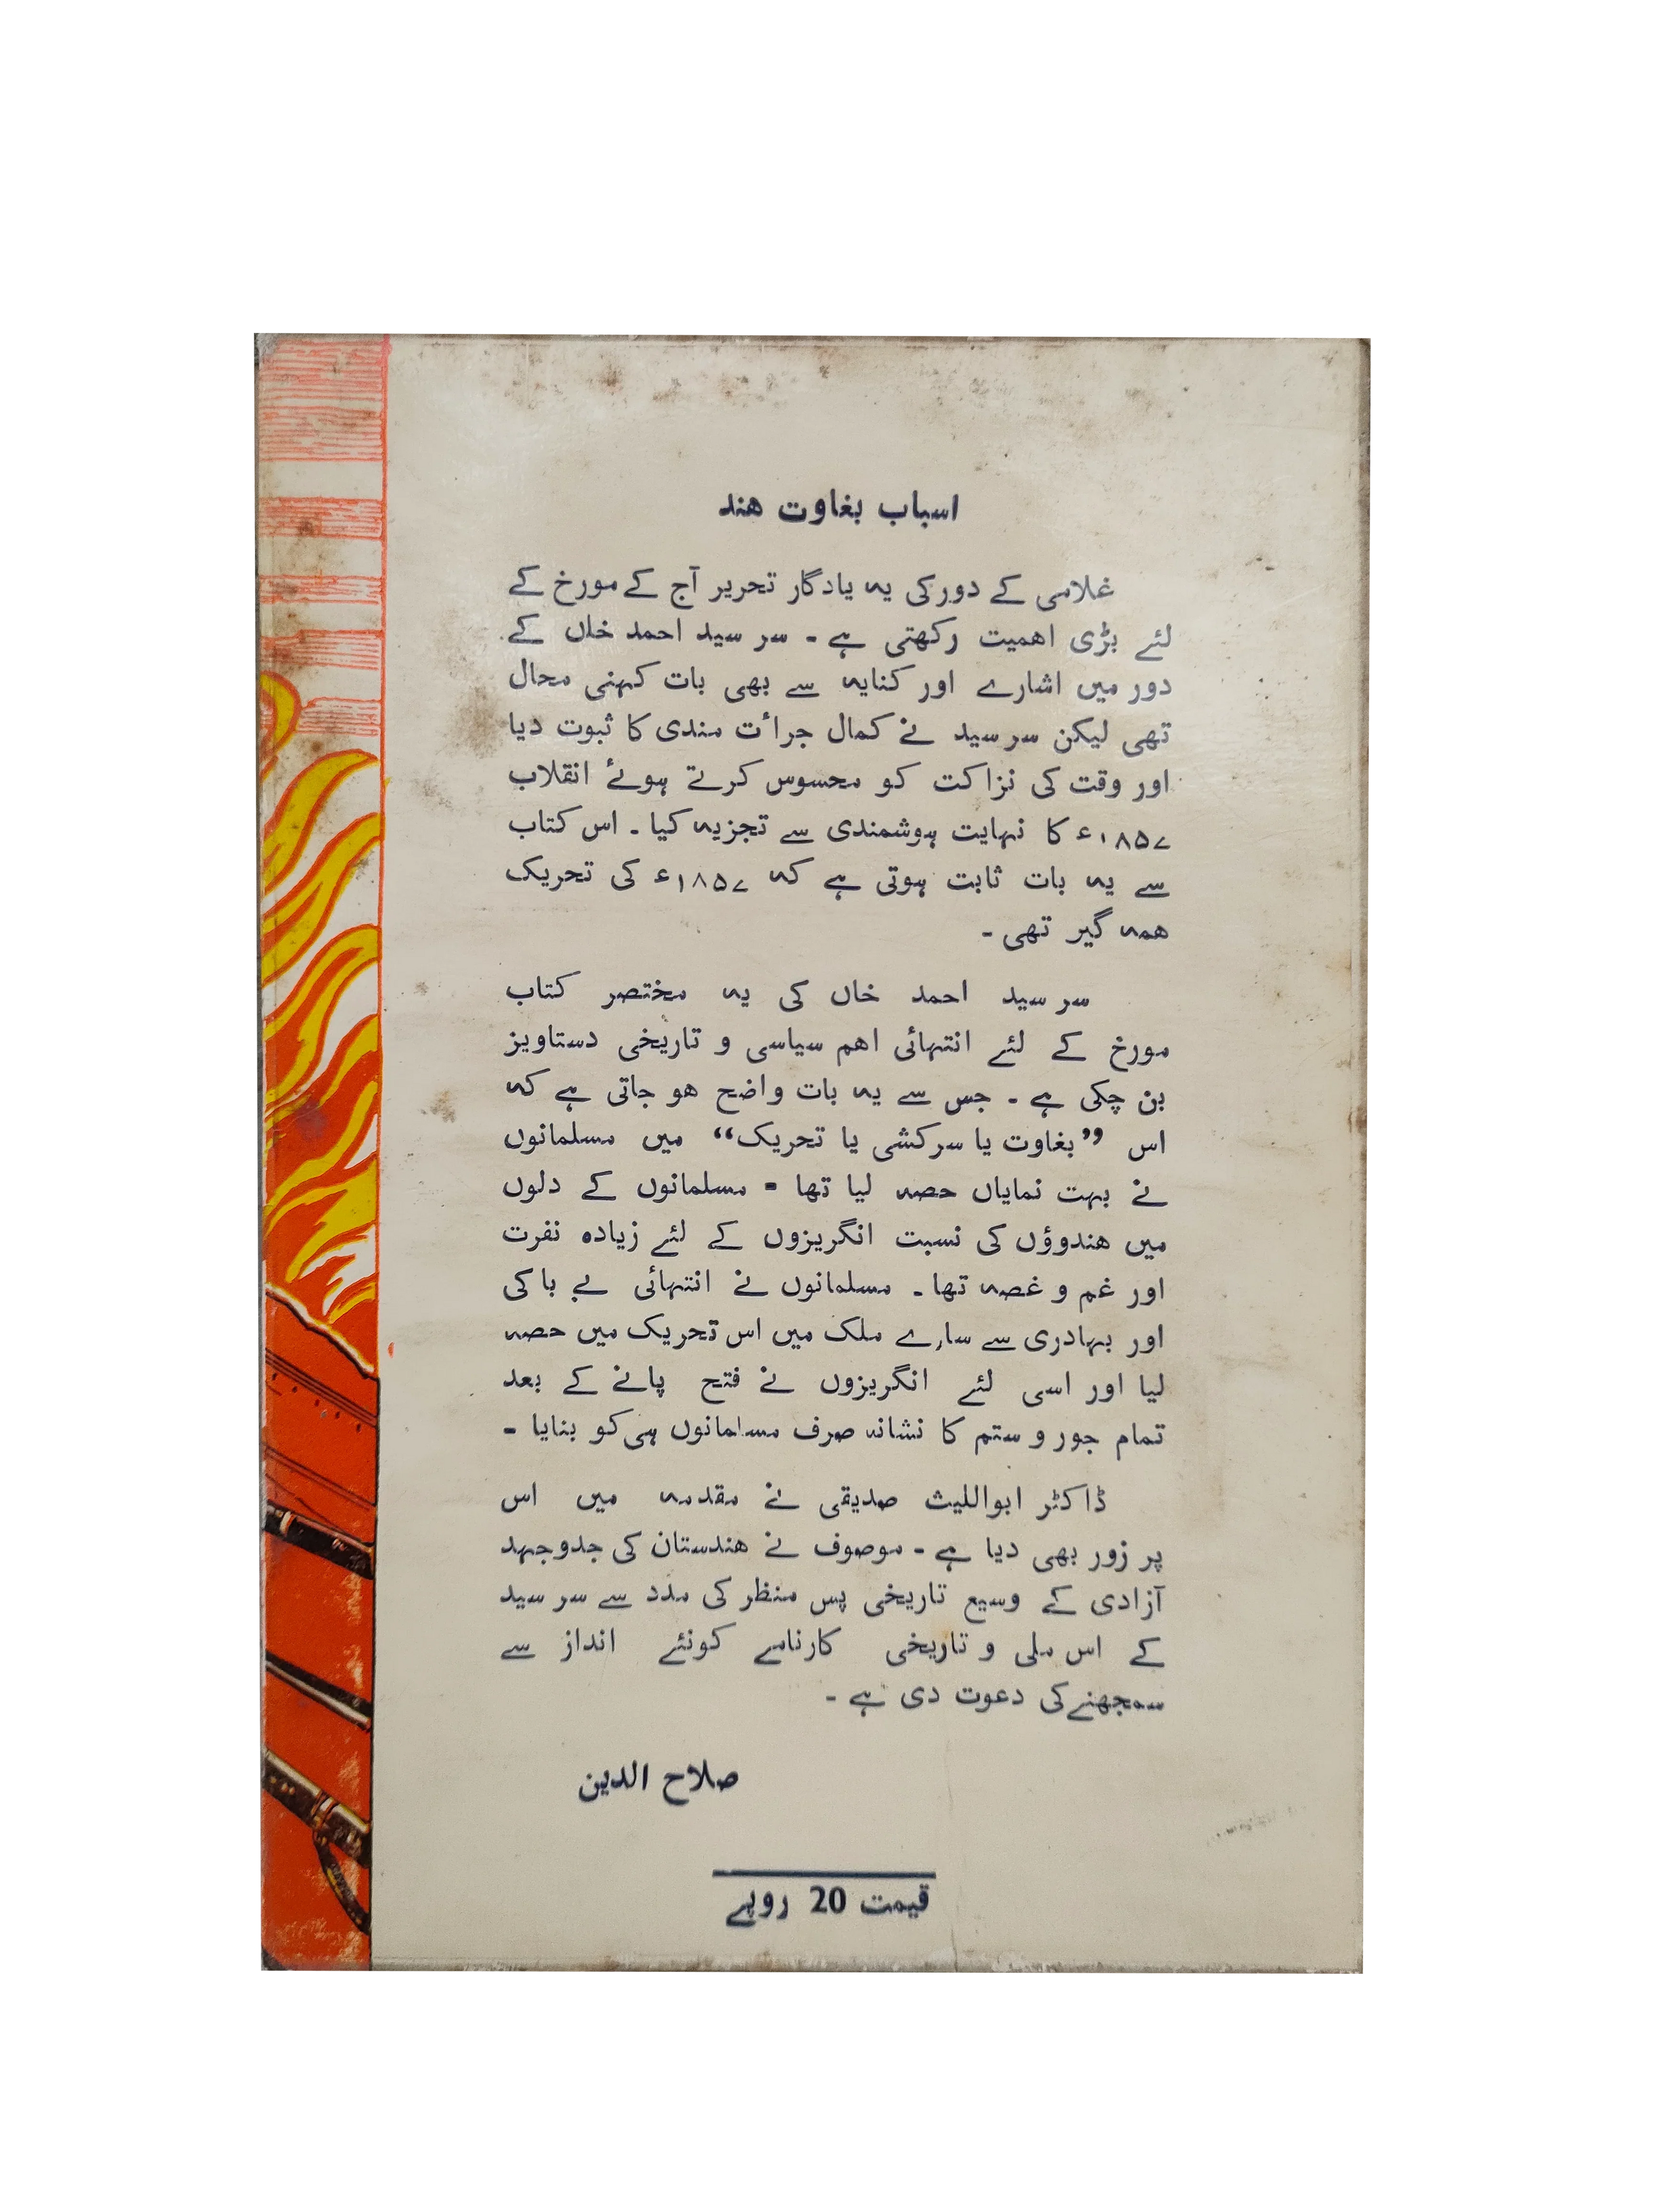 اسباب بغاوت ھند
غلامی کے دور کی یہ یادگار تحریر آج کے مورخ کے
لئے بڑی اھمیت رکھتی ہے ۔ سر سید احمد خاں کے
دور میں اشارے اور کنایہ سے بھی بات کہنی محال
تھی لیکن سر سید نے کمال جرأت مندی کا ثبوت دیا
اور وقت کی نزاکت کو محسوس کرتے ہوئے انقلاب
۱۸۵۷ء کا نہایت ہوشمندی سے تجزیہ کیا ۔ اس کتاب
سے یہ بات ثابت ہوتی ہے کہ ۱۸۵۷ء کی تحریک
ھمہ گیر تھی ۔
سر سید احمد خاں کی یہ مختصر کتاب
مورخ کے لئے انتہائی اھم سیاسی و تاریخی دستاویز
بن چکی ہے ۔ جس سے یہ بات واضح ھو جاتی ہے کہ
اس ”بغاوت یا سرکشی یا تحریک“ میں مسلمانوں
نے بہت نمایاں حصہ لیا تھا ۔ مسلمانوں کے دلوں
میں ھندوؤں کی نسبت انگریزوں کے لئے زیادہ نفرت
اور غم و غصہ تھا ۔ مسلمانوں نے انتہائی بے باکی
اور بہادری سے سارے ملک میں اس تحریک میں حصہ
لیا اور اسی لئے انگریزوں نے فتح پانے کے بعد
تمام جور و ستم کا نشانہ صرف مسلمانوں ہی کو بنایا ۔
ڈاکٹر ابواللیث صدیقی نے مقدمہ میں اس
پر زور بھی دیا ہے ۔ موصوف نے ھندستان کی جدوجہد
آزادی کے وسیع تاریخی پس منظر کی مدد سے سر سید
کے اس ملی و تاریخی کارنامے کو نئے انداز سے
سمجھنے کی دعوت دی ہے ۔
صلاح الدین
قیمت 20 روپے